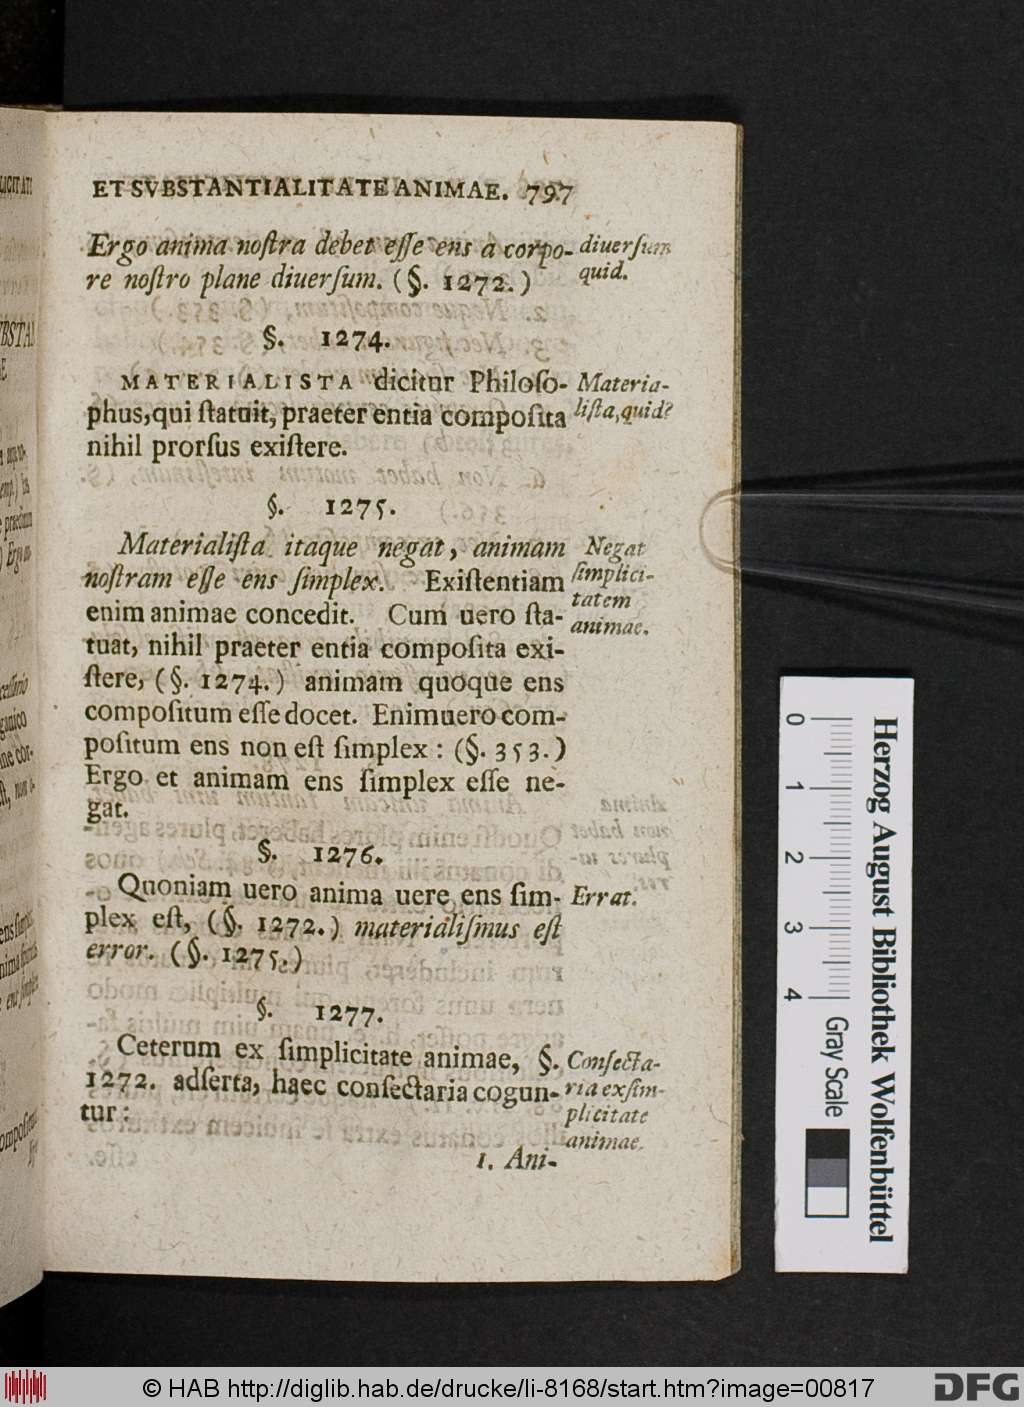 ET SVBSTANTIALITATE ANIMAE. 797
Ergo anima noſtra debet eſſe ens a corpo-
re noſtro plane diuerſum. (§. 1272.)
diuerſum
quid.
§. 1274.
MATERIALISTA dicitur Philoſo-
phus, qui ſtatuit, praeter entia compoſita
nihil prorſus exiſtere.
Materia-
liſta, quid?
§. 1275.
Materialiſta itaque negat, animam
noſtram eſſe ens ſimplex. Exiſtentiam
enim animae concedit. Cum uero ſta-
tuat, nihil praeter entia compoſita exi-
ſtere, (§. 1274.) animam quoque ens
compoſitum eſſe docet. Enimuero com-
poſitum ens non eſt ſimplex: (§. 353.)
Ergo et animam ens ſimplex eſſe ne-
gat.
Negat
ſimplici-
tatem
animae.
§. 1276.
Quoniam uero anima uere ens ſim-
plex eſt, (§. 1272.) materialiſmus eſt
error. (§. 1275.)
Errat.
§. 1277.
Ceterum ex ſimplicitate animae, §.
1272. adſerta, haec conſectaria cogun-
tur:
Conſecta-
ria ex ſim-
plicitate
animae.
1. Ani-
0 1 2 3 4
Gray Scale
Herzog August Bibliothek Wolfenbüttel
© HAB http://diglib.hab.de/drucke/li-8168/start.htm?image=00817
DFG